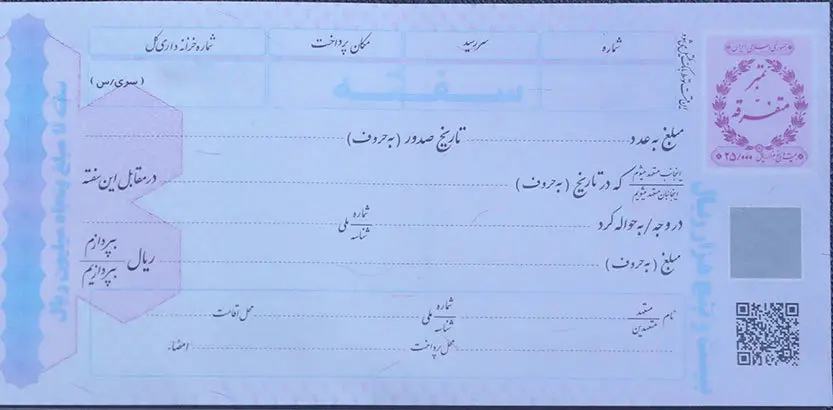 شماره    سررسید    مکان پرداخت    شماره خزانه داری کل
سفته
(سری/س)
مبلغ به عدد    تاریخ صدور (به حروف)
اینجانب متعهد میشوم
اینجانبان متعهد میشویم
که در تاریخ (به حروف)    در مقابل این سفته
در وجه/به حواله کرد    شماره ملی
شناسه
مبلغ (به حروف)    ریال    بپردازم
بپردازیم
نام متعهد
متعهدین    شماره ملی
شناسه    محل اقامت
محل پرداخت    امضاء
جمهوری اسلامی ایران
تمبر
متفرقه
۲۵/۰۰۰ ریال
بیست و پنج هزار ریال
سفته تا مبلغ پنجاه میلیون ریال